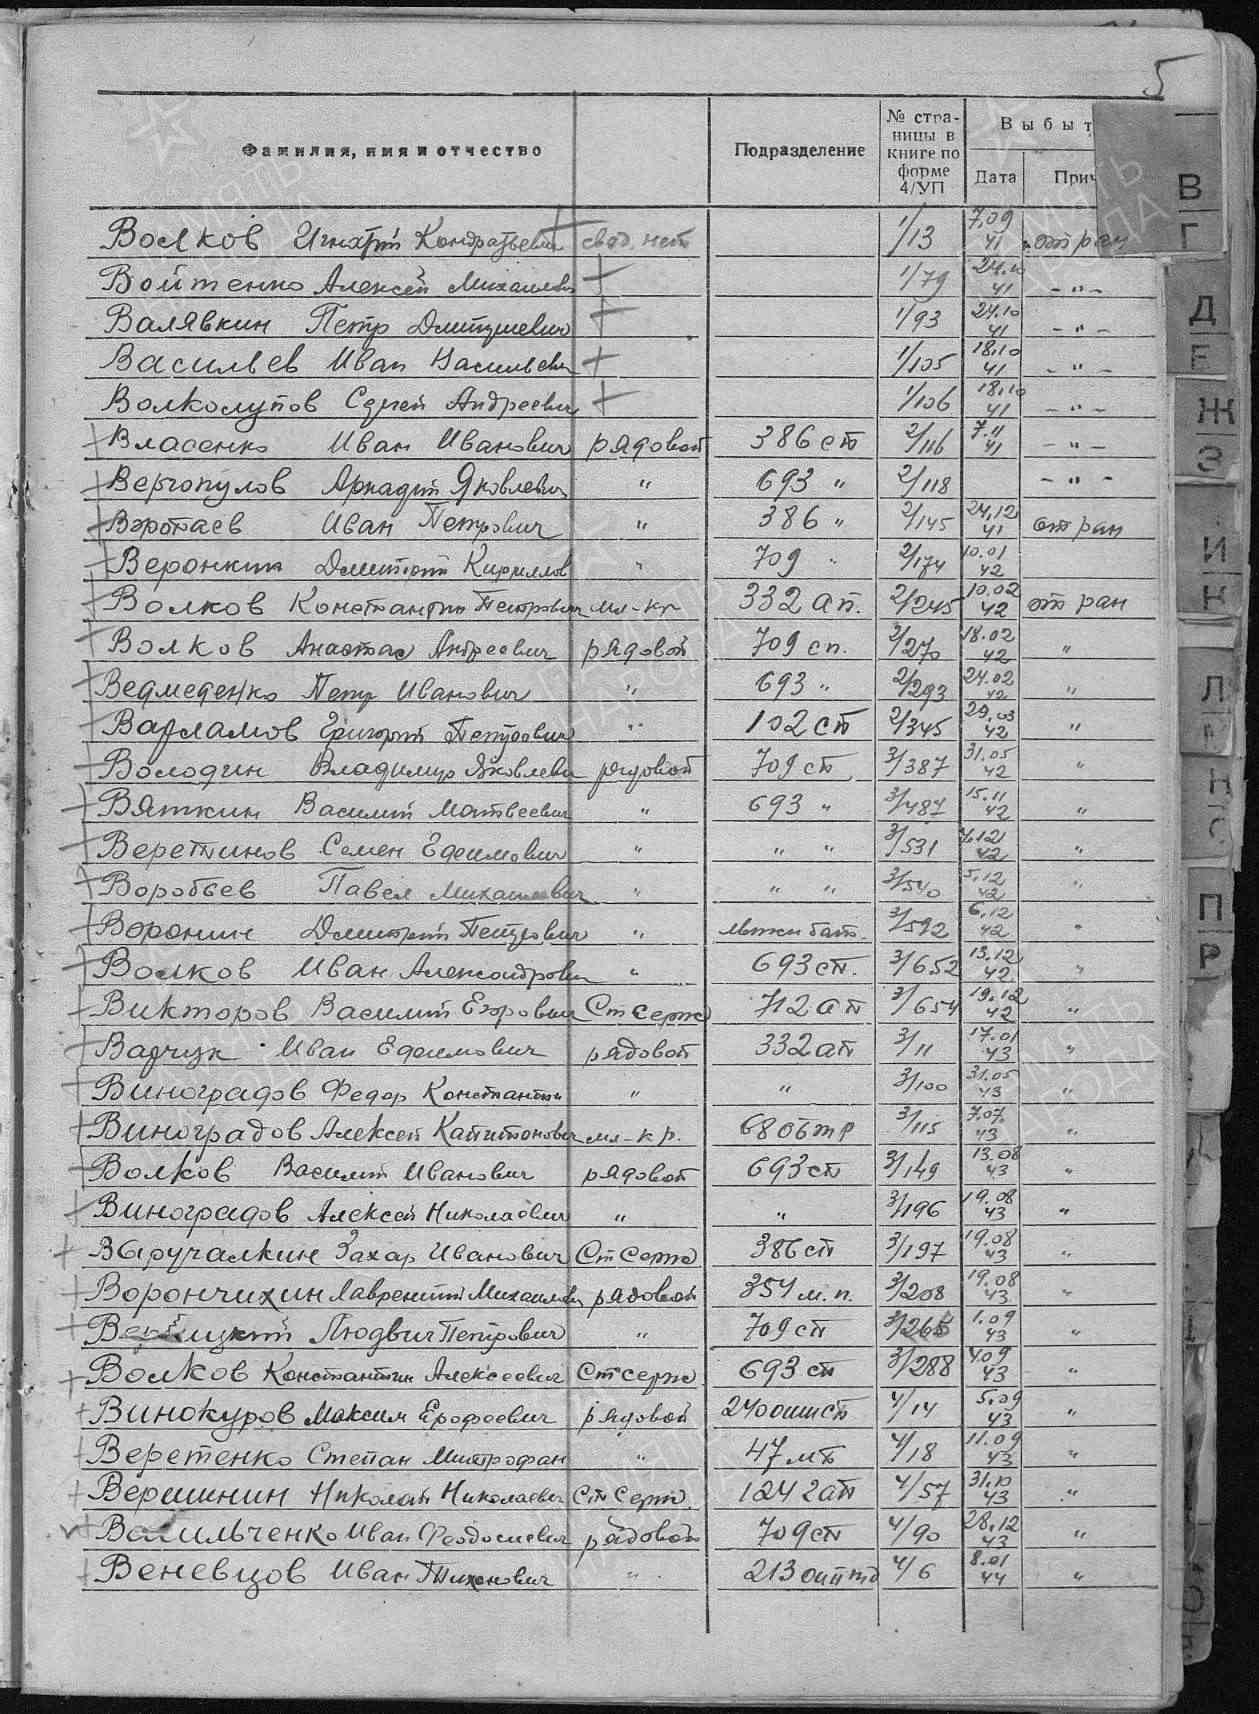 5
Фамилия, имя и отчество Подразделение № страницы в книге по форме 4/УП Выбыт Дата Прич
Волков Игнатий Кондратьевич свед. нет 1/13 7.09 41 от ран
Войтенко Алексей Михайлович 1/79 24.10 41 - " -
Валявкин Петр Дмитриевич 1/93 24.10 41 - " -
Васильев Иван Васильевич 1/105 18.10 41 - " -
Волколупов Сергей Андреевич 1/106 18.10 41 - " -
Власенко Иван Иванович рядовой 386 сп 2/116 7.11 41 - " -
Вергопулов Аркадий Яковлевич " 693 " 2/118 - " -
Воропаев Иван Петрович " 386 " 2/145 24.12 41 от ран
Веронкин Дмитрий Кириллов " 709 " 2/174 10.01 42
Волков Константин Петрович мл-кр 332 ап. 2/245 10.02 42 от ран
Волков Анастас Андреевич рядовой 709 сп. 2/270 18.02 42 "
Ведмеденко Петр Иванович " 693 " 2/293 24.02 42 "
Варламов Григорий Петрович " 102 сп 2/345 29.03 42 "
Володин Владимир Яковлевич рядовой 709 сп 3/387 31.05 42 "
Вяткин Василий Матвеевич " 693 " 3/487 15.11 42 "
Веретинов Семен Ефимович " " " 3/531 4.12 42 "
Воробьев Павел Михайлович " " " 3/540 5.12 42 "
Воронин Дмитрий Петрович " 3/592 6.12 42 "
Волков Иван Александрович " 693 сп. 3/652 13.12 42 "
Викторов Василий Егорович Ст серж 712 ап 3/654 19.12 42 "
Варчук Иван Ефимович рядовой 332 ап 3/11 17.01 43 "
Виноградов Федор Константин " " 3/100 31.05 43 "
Виноградов Алексей Капитонович мл-кр. 680бтр 3/115 7.07 43 "
Волков Василий Иванович рядовой 693 сп 3/149 13.08 43 "
Виноградов Алексей Николаевич " " 3/196 19.08 43 "
Выручалкин Захар Иванович Ст серж 386 сп 3/197 19.08 43 "
Ворончихин Лаврентий Михайлович рядовой 354 м.п. 3/208 19.08 43 "
Людвиг Петрович " 709 сп 3/265 1.09 43 "
Волков Константин Алексеевич Ст серж 693 сп 3/288 4.09 43 "
Винокуров Максим Ерофеевич рядовой 4/14 5.09 43 "
Веретенко Степан Митрофан " 47 мб 4/18 11.09 43 "
Вершинин Николай Николаевич Ст серж. 1242ап 4/57 31.10 43 "
Васильченко Иван Феодосиевич рядовой 709 сп 4/90 28.12 43 "
Веневцов Иван Тихонович " 4/6 8.01 44 "
В
Г
Д
Е
Ж
З
И
К
Л
М
Н
О
П
Р